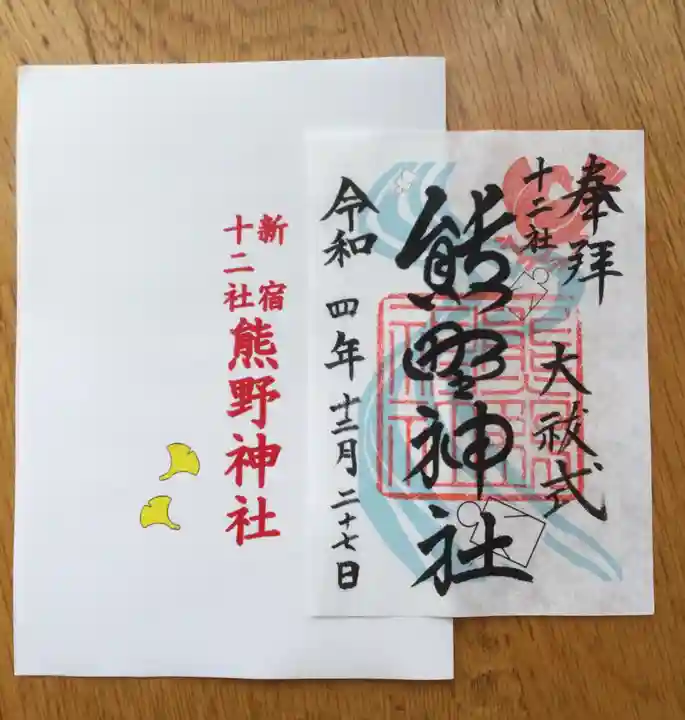 新宿
十二社
熊野神社
奉拝
大祓式
十二社
熊野神社
令和四年十二月二十七日